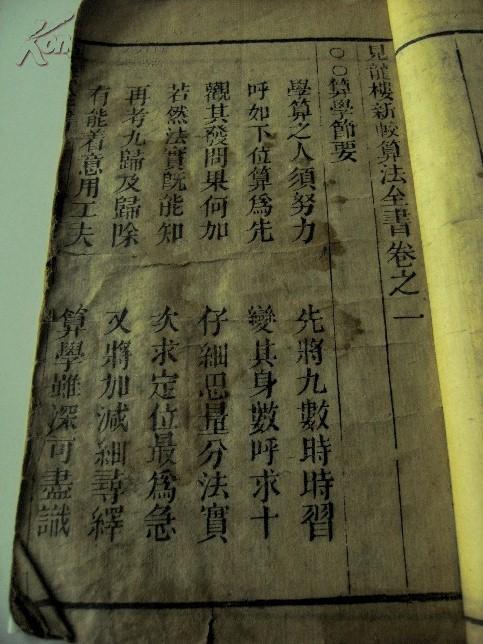 見龍樓新較算法全書卷之一
○○算學節要
學算之人須努力 先將九數時時習
呼如下位算為先 變其身數呼求十
觀其發問果何如 仔細思量分法實
若然法實既能知 次求定位最為急
再考九歸及歸除 又將加減細尋繹
有能着意用工夫 算學雖深可盡識